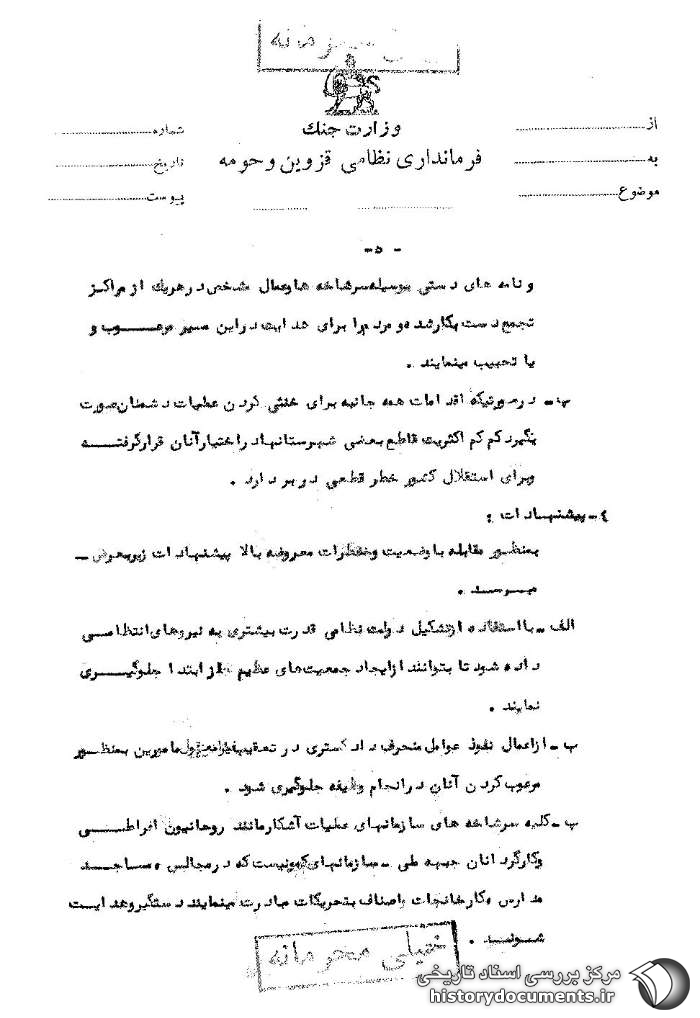 خیلی محرمانه
وزارت جنك
فرمانداری نظامی قزوین وحومه
از
به
موضوع
شماره
تاریخ
پیوست
- ۵ -
و نامه های دستی بوسیله سرشاخه ها وعمال مشخص در هریك از مراکز
تجمع دست بکار شده و مردم را برای هدایت در این مسیر مرعوب و
یا تحبیب مینمایند .
در صورتیکه اقدامات همه جانبه برای خنثی کردن عملیات دشمنان صورت
نگیرد کم کم اکثریت قاطع بعضی شهرستانها در اختیار آنان قرار گرفته
وبرای استقلال کشور خطر قطعی در بر دارد .
٤ - پیشنهادات :
بمنظور مقابله با وضعیت وخطرات معروضه بالا پیشنهادات زیر بعرض -
میرسد .
الف - با استفاده از تشکیل دولت نظامی قدرت بیشتری به نیروهای انتظامی
داده شود تا بتوانند از ایجاد جمعیت‌های عظیم از ابتدا جلوگیری
نمایند .
ب - از اعمال نفوذ عوامل منحرف دادگستری در تعقیب مامورین بمنظور
مرعوب کردن آنان در انجام وظیفه جلوگیری شود .
پ - کلیه سرشاخه های سازمانهای عملیات آشکار مانند روحانیون افراطی
وکارگردانان جبهه ملی - سازمانهای کمونیست که در مجالس مساجد
مدارس وکارخانجات واصناف بتحریکات مبادرت مینمایند دستگیر وهدایت
شوند .
خیلی محرمانه
مرکز بررسی اسناد تاریخی
historydocuments.ir